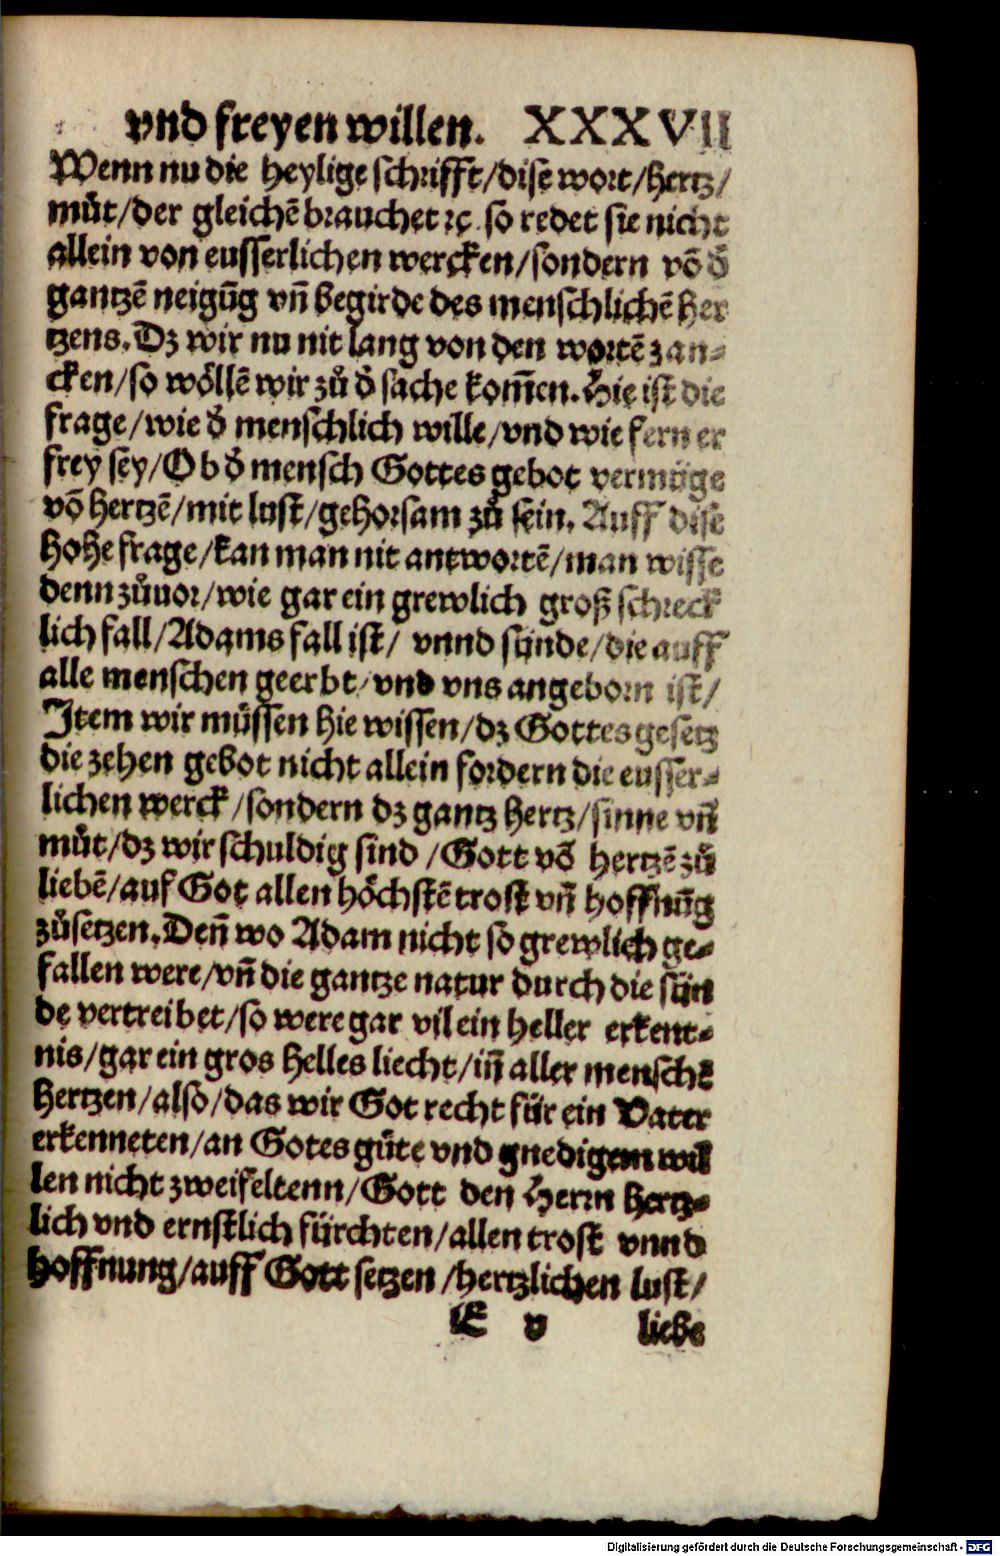 vnd freyen willen. XXXVII
Wenn nu die heylige schrifft/dise wort/hertz/
muͦt/der gleichē brauchet ꝛc. so redet sie nicht
allein von eusserlichen wercken/sondern vō ď
gantzē neigūg vñ begirde des menschlichē her
tzens. Dz wir nu nit lang von den wortē zan⸗
cken/so woͤllē wir zuͦ ď sache kom̄en. Hie ist die
frage/wie ď menschlich wille/vnd wie fern er
frey sey/Ob ď mensch Gottes gebot vermuͤge
vō hertzē/mit lust/gehorsam zuͦ sein. Auff dise
hohe frage/kan man nit antwortē/man wisse
denn zuͦuor/wie gar ein grewlich groß schreck
lich fall/Adams fall ist/ vnnd suͤnde/die auff
alle menschen geerbt/vnd vns angeborn ist/
Item wir muͤssen hie wissen/dz Gottes gesetz
die zehen gebot nicht allein fordern die eusser⸗
lichen werck/sondern dz gantz hertz/sinne vñ
muͦt/dz wir schuldig sind/Gott vō hertzē zuͦ
liebē/auf Got allen hoͤchstē trost vñ hoffnūg
zuͦsetzen. Deñ wo Adam nicht so grewlich ge⸗
fallen were/vñ die gantze natur durch die suͤn
de vertreibet/so were gar vil ein heller erkent⸗
nis/gar ein gros helles liecht/iñ aller menschē
hertzen/also/das wir Got recht fuͤr ein Vater
erkenneten/an Gotes guͤte vnd gnedigem wil
len nicht zweifeltenn/Gott den Herrn hertz⸗
lich vnd ernstlich fuͤrchten/allen trost vnnd
hoffnung/auff Gott setzen/hertzlichen lust/
E v liebe
Digitalisierung gefördert durch die Deutsche Forschungsgemeinschaft - DFG